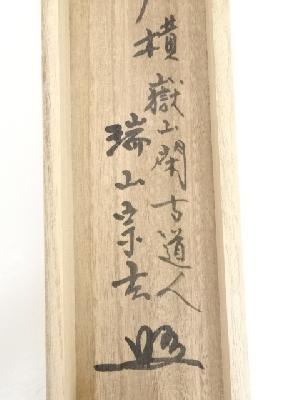 横嶽山閑古道人
瑞山宗玄